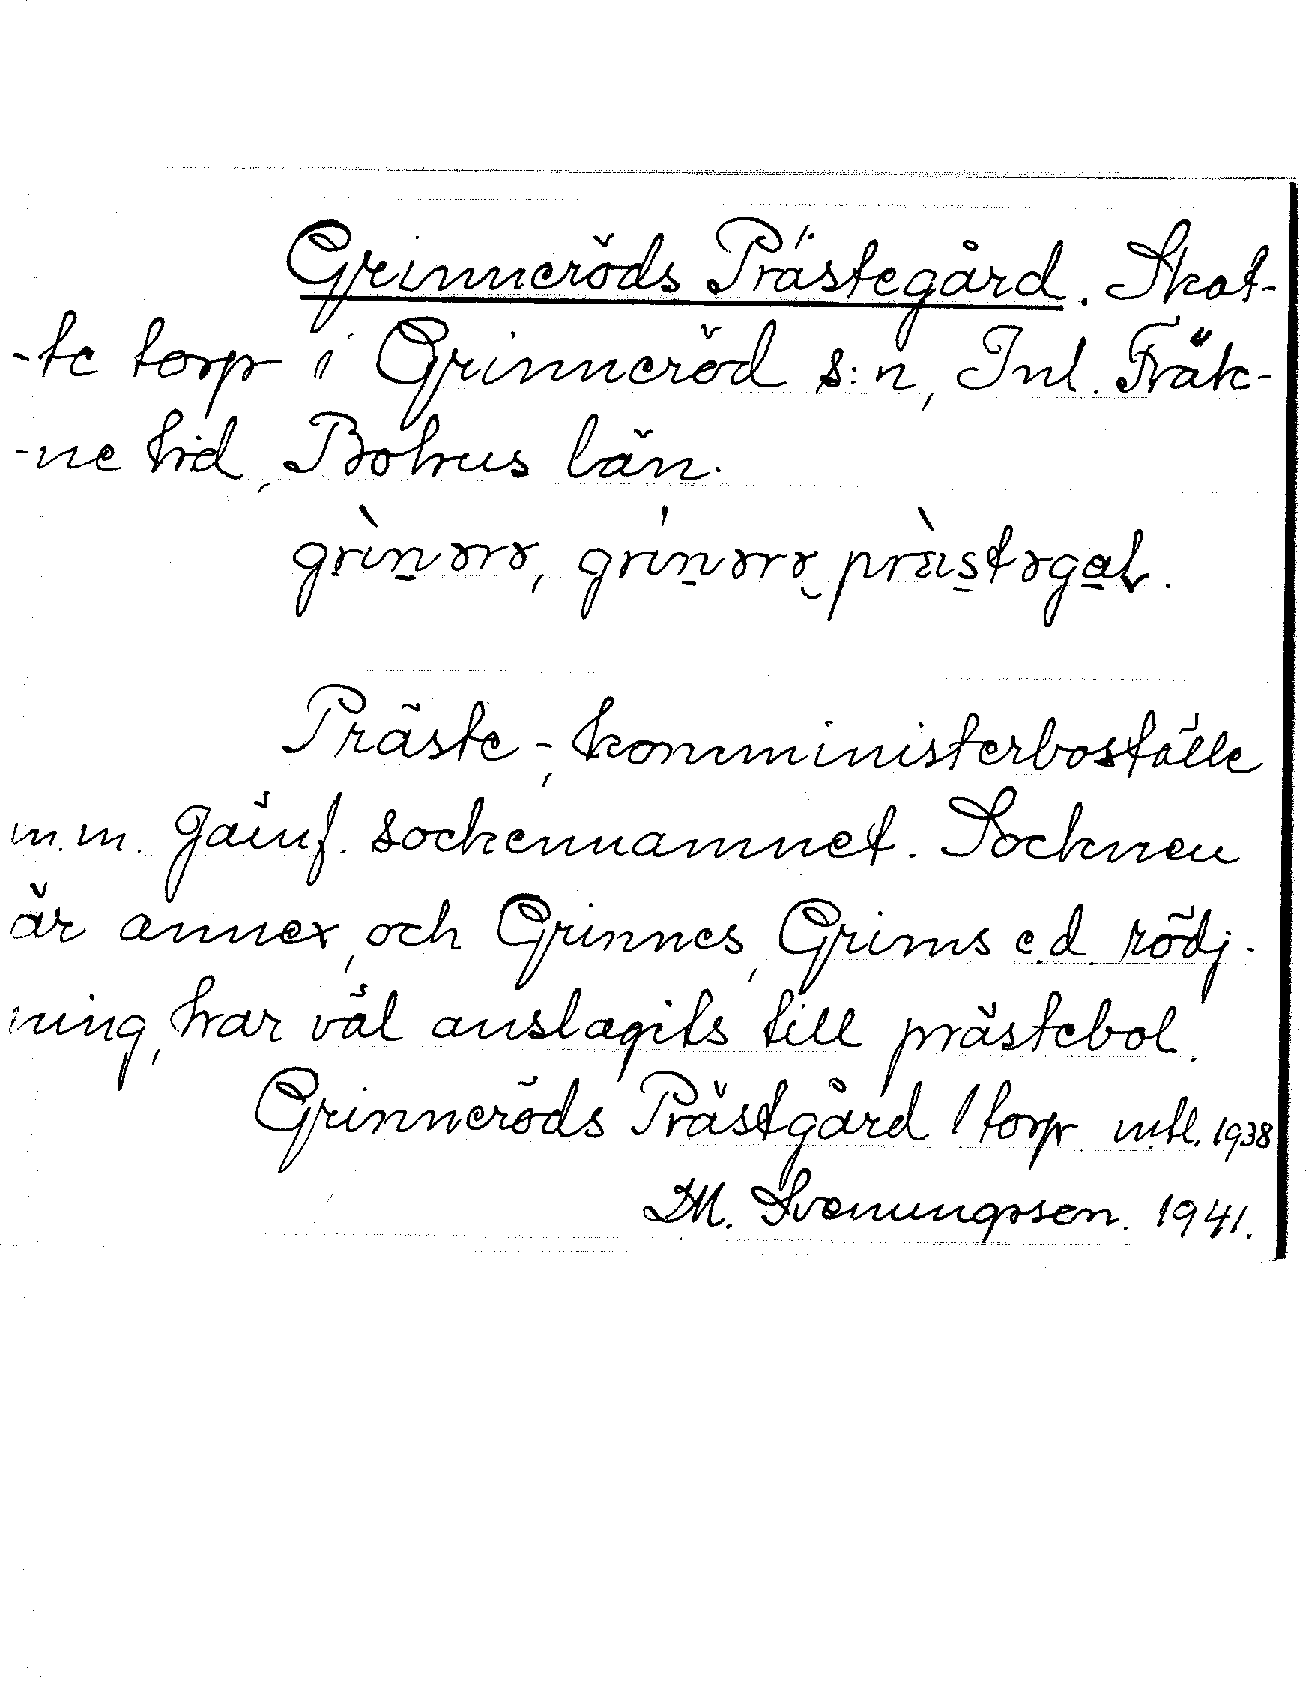 Grinneröds Prästegård. Skat-
-te torp i Grinneröd s:n, Inl. Fräk-
-ne hd, Bohus län.
grìnərə, grínərə prästəgaL.
Präste-, komministerboställe
m.m. Jämf. sockennamnet. Socknen
är annex, och Grinnes, Grims e.d. rödj-
ning, har väl anslagits till prästebol.
Grinneröds Prästgård 1 torp mtl. 1938
M. Svenungsson. 1941.